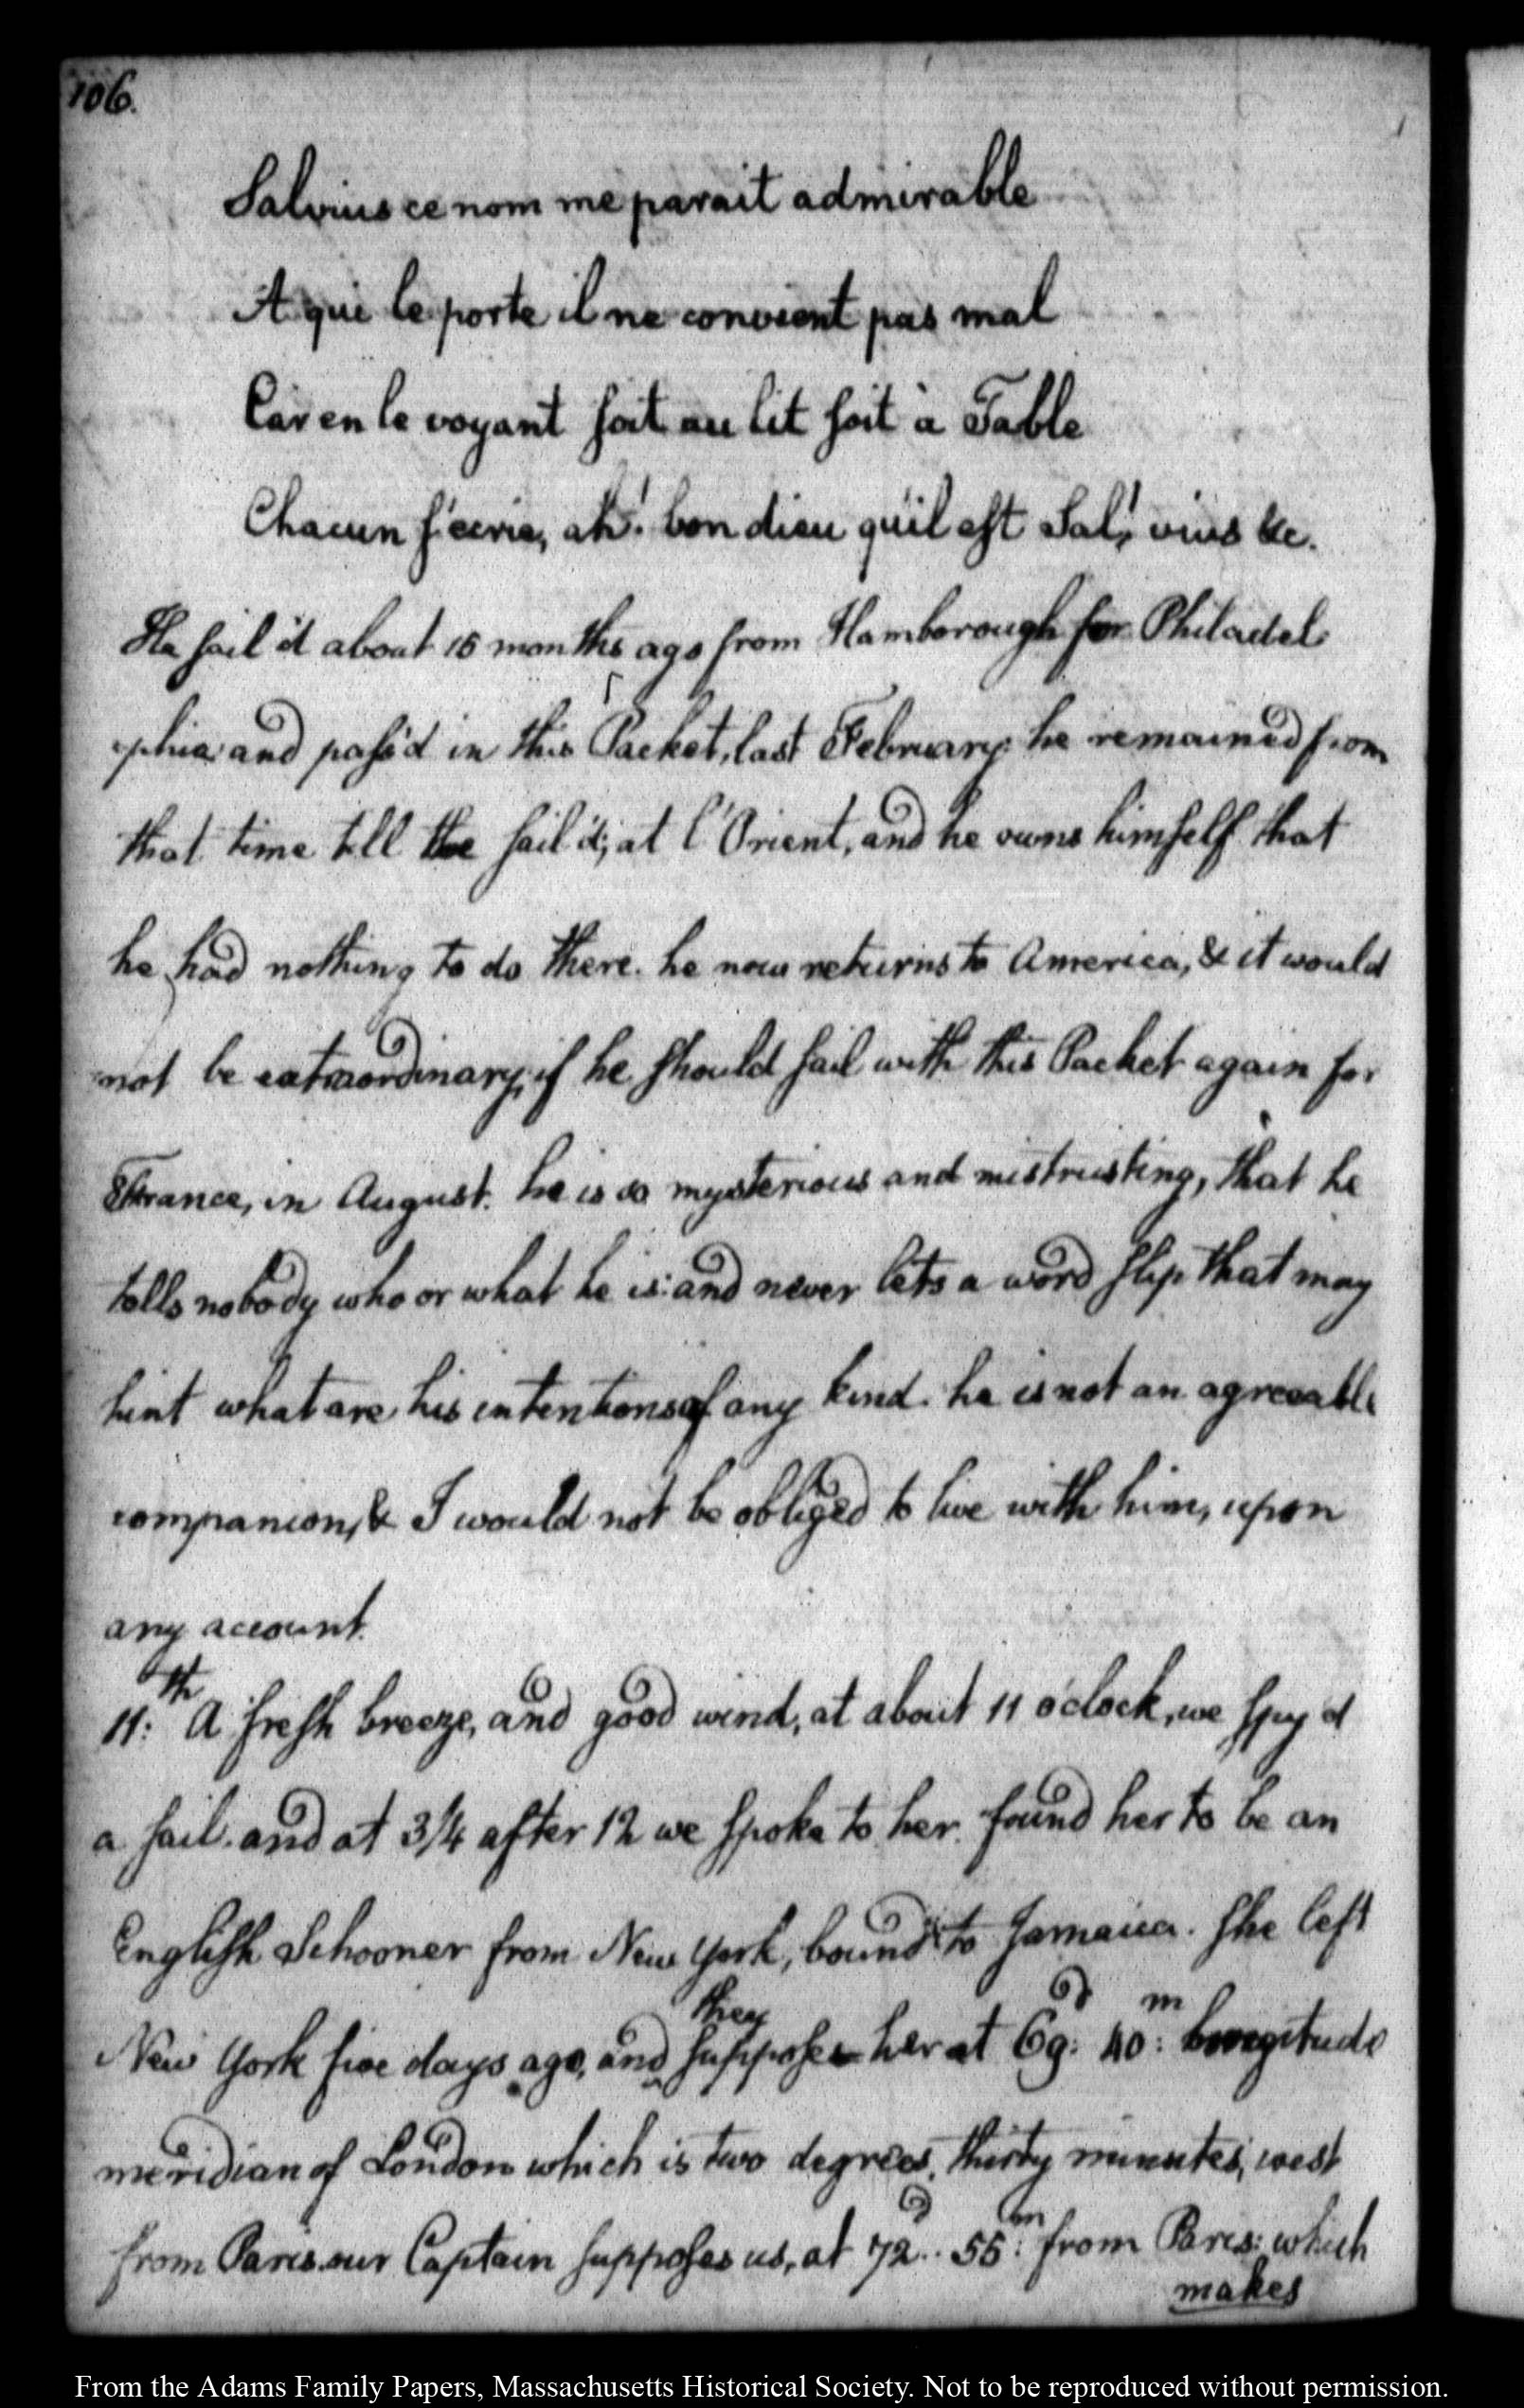 106.
Salvius ce nom me parait admirable
A qui le porte il ne convient pas mal
Car en le voyant soit au lit soit à Table
Chacun s'ecrie, ah! bon dieu qu'il est Sal, vius &c.
He sail'd about 15 months ago from Hamborough for Philadel
phia and pass'd in this Packet, last February: he remained from
that time till she sail'd, at l'Orient, and he owns himself that
he had nothing to do there. he now returns to America, & it would
not be extraordinary, if he should sail with this Packet again for
France, in August. he is so mysterious and mistrusting, that he
tells nobody who or what he is: and never lets a word slip that may
hint what are his intentions of any kind. he is not an agreeable
companion, & I would not be obliged to live with him, upon
any account.
11:th A fresh breeze, and good wind, at about 11 o'clock, we spy'd
a sail. and at 3/4 after 12 we spoke to her. found her to be an
English Schooner from New York, bound to Jamaica. She left
New York five days ago, and they supposes her at 69:d 40:m longitude
meridian of London which is two degrees, thirty minutes, west
from Paris. our Captain supposes us, at 72d.. 55:m from Paris: which
makes
From the Adams Family Papers, Massachusetts Historical Society. Not to be reproduced without permission.